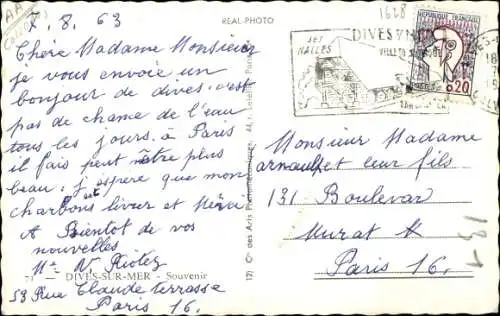 7. 8. 63
REAL-PHOTO
1628
Chere Madame Monsieur
je vous envoie un
bonjour de dives. c'est
pas de chance de l'eau
tous les jours. a Paris
il fais peut être plus
beau: j'espere que mon
charbons est livrer et
A Bientot de vos
nouvelles
DIVES-SUR-MER - Souvenir
53 Rue Claude terrasse
Paris 16.
SES
HALLES
DIVES
REPUBLIQUE FRANÇAISE
0,20
Monsieur Madame
arnault et leur fils
131 Boulevar
Murat
Paris 16.